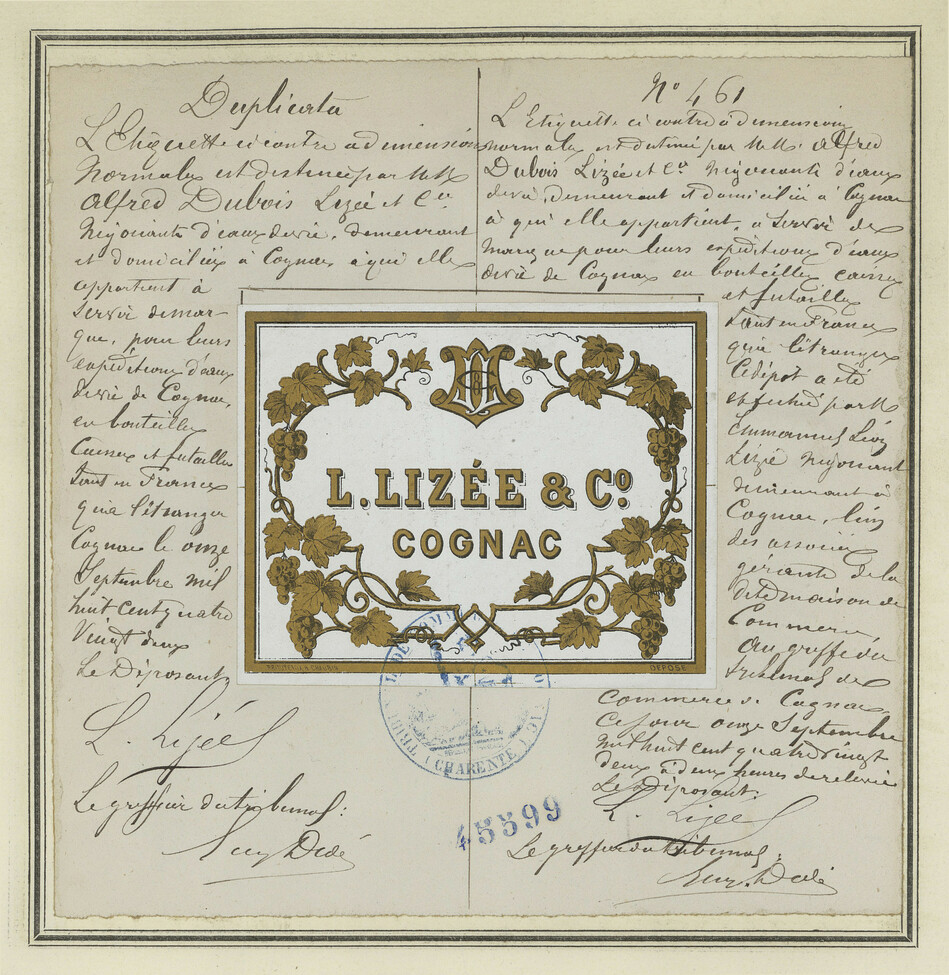 Duplicata
L'Etiquette ci contre a dimensions
Normales est destinée par M M
Alfred Dubois Lizée et Cie
Négociants d'eaux devie, demeurant
et domiciliés à Cognac, à qui elle
appartient à
servir demar-
que, pour leurs
expéditions d'eaux
devie de Cognac,
en bouteilles
Caisses et futailles
tant en France
qu'à l'étranger
Cognac le onze
Septembre mil
huit cent quatre
Vingt deux
Le Déposant
L. Lizée
Le greffier du tribunal:
Eug. Dedé
No 461
L'Etiquette ci contre à dimensions
normales est destinée par M.M. Alfred
Dubois Lizée et Cie Négociants d'eaux
devie, demeurant et domiciliés à Cognac
à qui elle appartient, à servir de
Marque pour leurs expéditions d'eaux
devie de Cognac en bouteilles caisses
et futailles
tant en France
qu'à l'étranger
Ce dépôt a été
effectué par M
Emmanuel Léon
Lizée Négociant
demeurant à
Cognac, l'un
des associés
gérants de la
dite maison de
Commerce
Au greffe du
tribunal de
Commerce de Cognac
Ce jour onze Septembre
mil huit cent quatre vingt
deux à deux heures de relevée
Le Déposant:
L. Lizée
Le greffier du tribunal:
Eug. Dedé
L. LIZÉE & Co
COGNAC
DÉPOSÉ
CHARENTE
45599